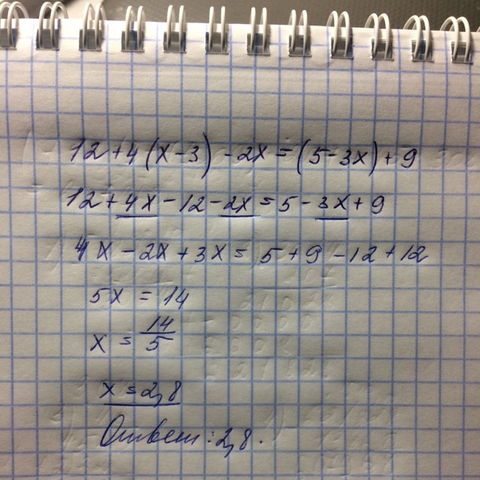 12+4(x-3)-2x=(5-3x)+9
12+4x-12-2x=5-3x+9
4x-2x+3x=5+9-12+12
5x=14
x=14/5
x=2,8
Ответ: 2,8.